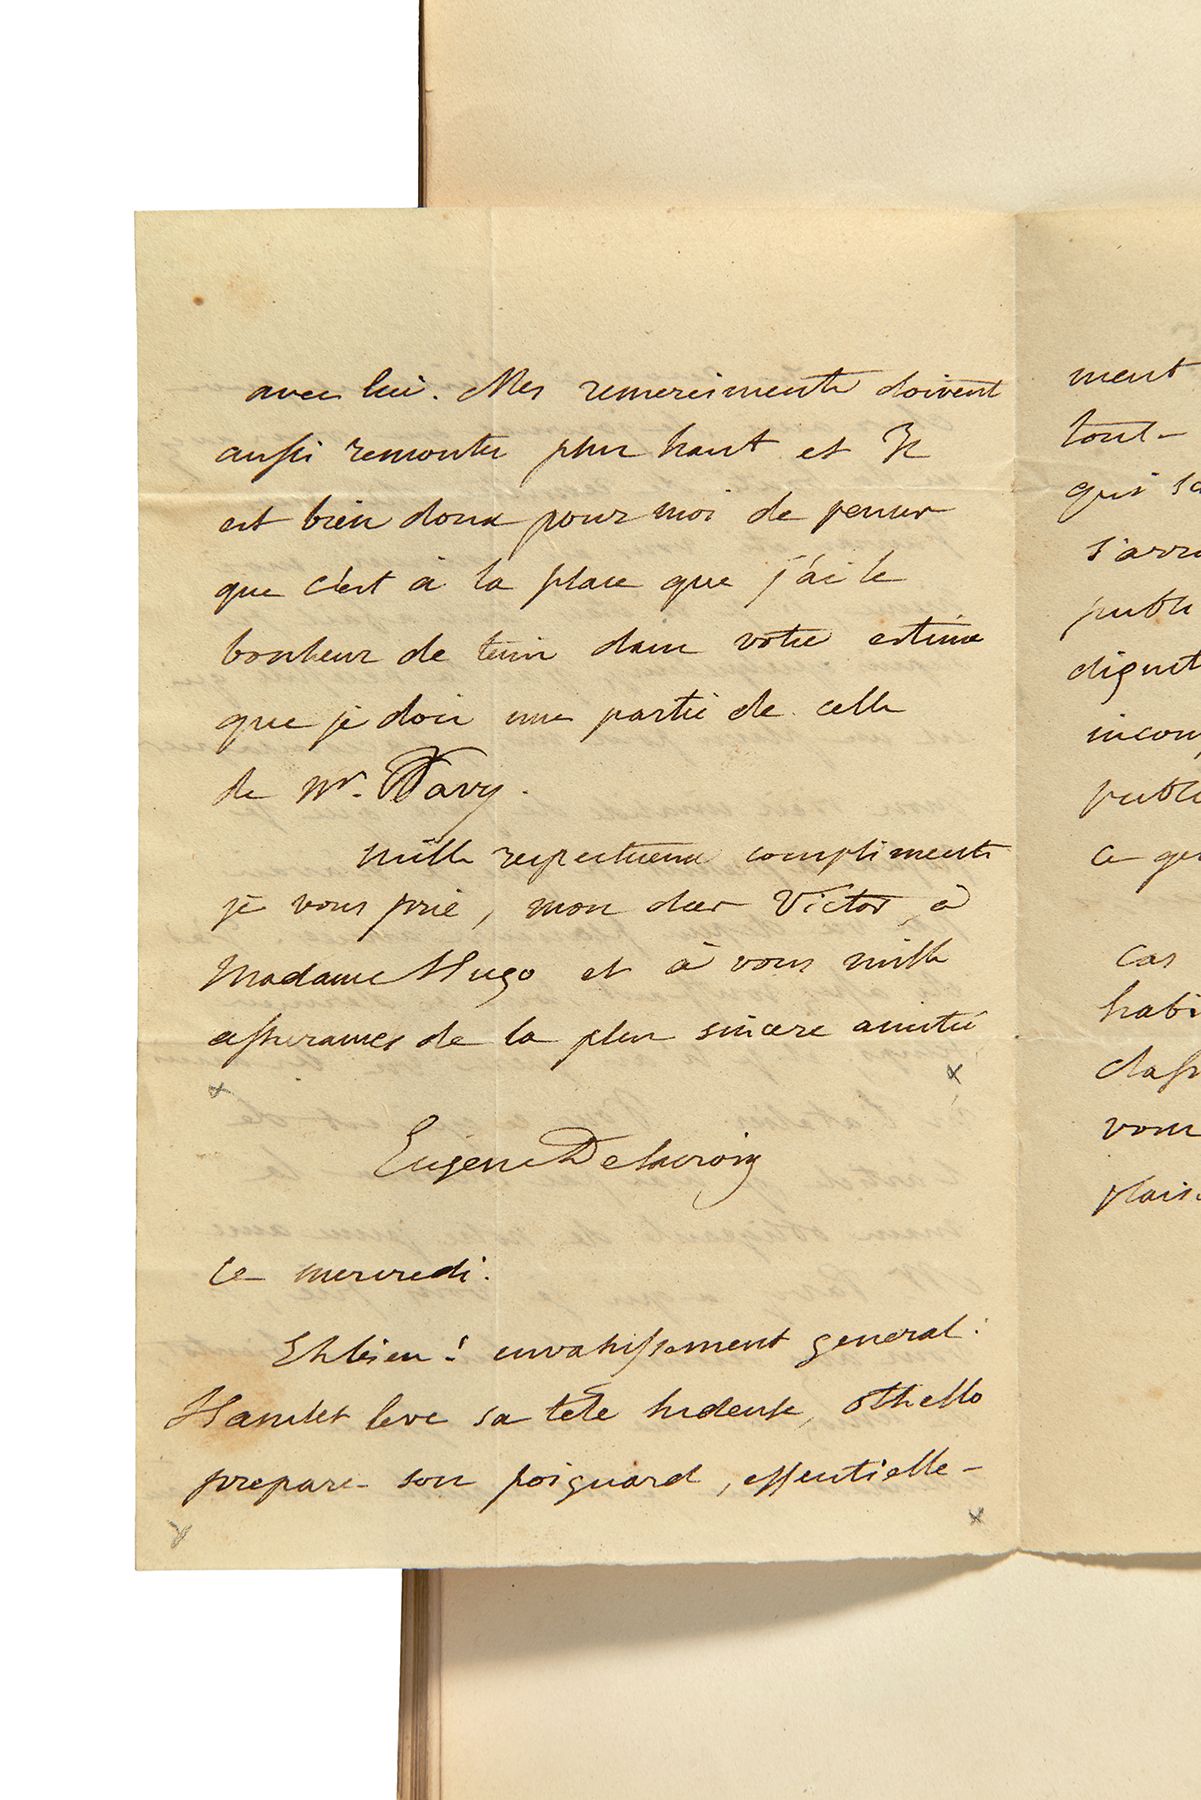 avec lui. Mes remerciments doivent
aussi remonter plus haut et il
est bien doux pour moi de penser
que c'est à la place que j'ai le
bonheur de tenir dans votre estime
que je dois une partie de celle
de Mr. Pavy.
Mille respectueux compliments
je vous prie, mon cher Victor, à
Madame Hugo et à vous mille
assurances de la plus sincere amitié
Eugène Delacroix
ce mercredi.
Eh bien! envahissement general:
Hamlet leve sa tête hideuse, Othello
prepare son poignard, essentielle-
ment
tout-
qui
s'arr
publi
digni
incon
public
ce qu
cas
habi
class
vous
plais